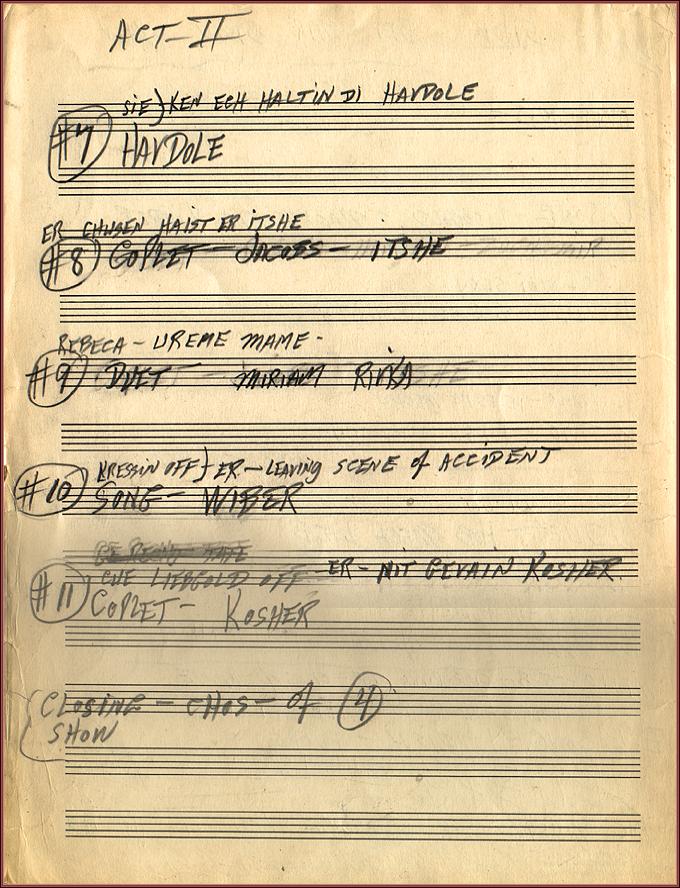 ACT-II
SIE) KEN ECH HALTIN DI HAVDOLE
#7 HAVDOLE
ER CHUSEN HAIST ER ITSHE
#8 COPLET - JACOBS - ITSHE
REBECA - UREME MAME -
#9 DUET - MIRIAM RIVKA
KRESSIN OFF} ER - LEAVING SCENE of ACCIDENT
#10 SONG - WIBER
CUE LIEBGOLD OFF - ER - NIT GEVAIN KOSHER
#11 COPLET - KOSHER
CLOSING - CHOS - of 4
SHOW